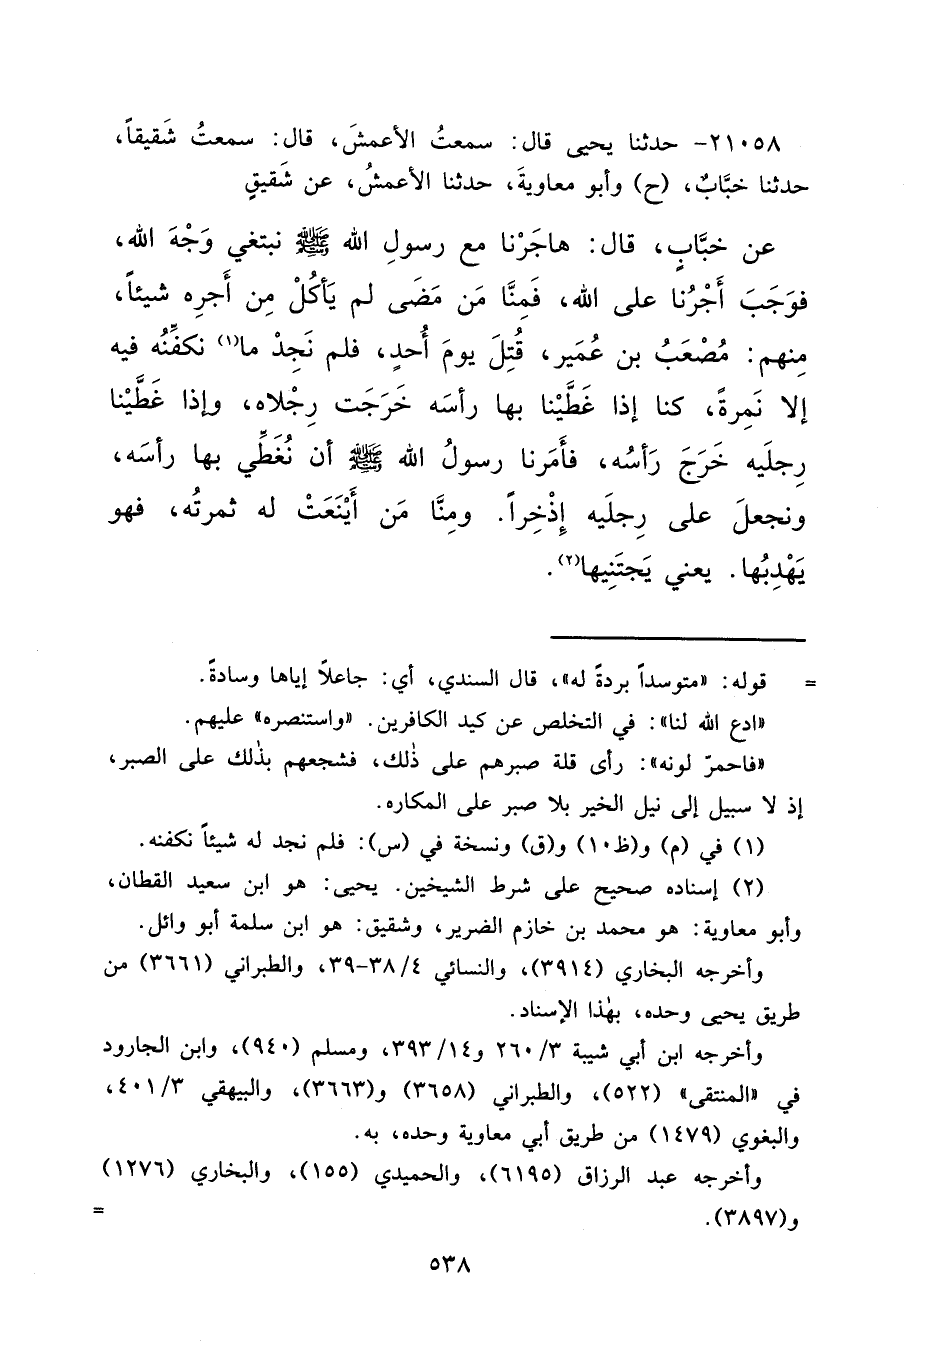 ٢١٠٥٨- حدثنا يحيى قال: سمعتُ الأعمشَ، قال: سمعتُ شَقيقاً،
حدثنا خبَّابٌ، (ح) وأبو معاويةَ، حدثنا الأعمشُ، عن شَقيقٍ
عن خبَّابٍ، قال: هاجَرْنا مع رسولِ الله ﷺ نبتغي وَجْهَ الله،
فوَجَبَ أَجْرُنا على الله، فَمِنَّا مَن مَضَى لم يَأكُلْ مِن أَجرِه شيئاً،
مِنهم: مُصْعَبُ بن عُمَير، قُتِلَ يومَ أُحدٍ، فلم نَجِدْ ما(١) نكفِّنُه فيه
إلا نَمِرةً، كنا إذا غَطَّيْنا بها رأسَه خَرَجَت رِجْلاه، وإذا غَطَّيْنا
رِجلَيه خَرَجَ رَأسُه، فأَمَرنا رسولُ الله ﷺ أن نُغَطِّي بها رأسَه،
ونجعلَ على رِجلَيه إِذْخِراً. ومِنَّا مَن أَيْنَعَتْ له ثمرتُه، فهو
يَهْدِبُها. يعني يَجتَنِيها(٢).
= قوله: «متوسداً بردةً له»، قال السندي، أي: جاعلاً إياها وسادةً.
«ادع الله لنا»: في التخلص عن كيد الكافرين. «واستنصره» عليهم.
«فاحمرّ لونه»: رأى قلة صبرهم على ذٰلك، فشجعهم بذٰلك على الصبر،
إذ لا سبيل إلى نيل الخير بلا صبر على المكاره.
(١) في (م) و(ظ١٠) و(ق) ونسخة في (س): فلم نجد له شيئاً نكفنه.
(٢) إسناده صحيح على شرط الشيخين. يحيى: هو ابن سعيد القطان،
وأبو معاوية: هو محمد بن خازم الضرير، وشقيق: هو ابن سلمة أبو وائل.
وأخرجه البخاري (٣٩١٤)، والنسائي ٣٨/٤-٣٩، والطبراني (٣٦٦١) من
طريق يحيى وحده، بهٰذا الإسناد.
وأخرجه ابن أبي شيبة ٢٦٠/٣ و٣٩٣/١٤، ومسلم (٩٤٠)، وابن الجارود
في «المنتقى» (٥٢٢)، والطبراني (٣٦٥٨) و(٣٦٦٣)، والبيهقي ٤٠١/٣،
والبغوي (١٤٧٩) من طريق أبي معاوية وحده، به.
وأخرجه عبد الرزاق (٦١٩٥)، والحميدي (١٥٥)، والبخاري (١٢٧٦)
و(٣٨٩٧). =
٥٣٨